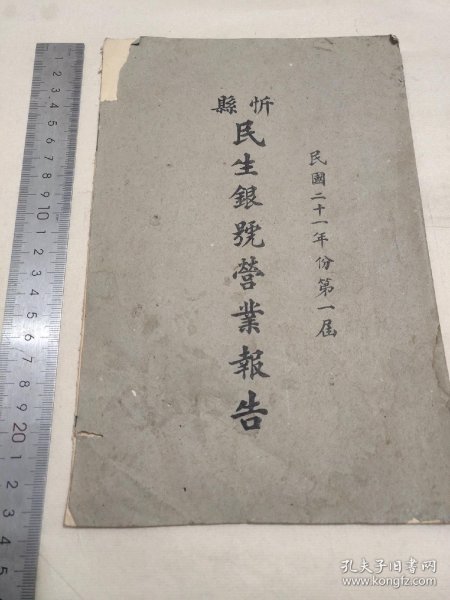 民國二十一年份第一屆
忻縣
民生銀號營業報告
1 2 3 4 5 6 7 8 9 10 1 2 3 4 5 6 7 8 9 20 1 2 3 4 5
孔夫子旧书网
www.kongfz.com